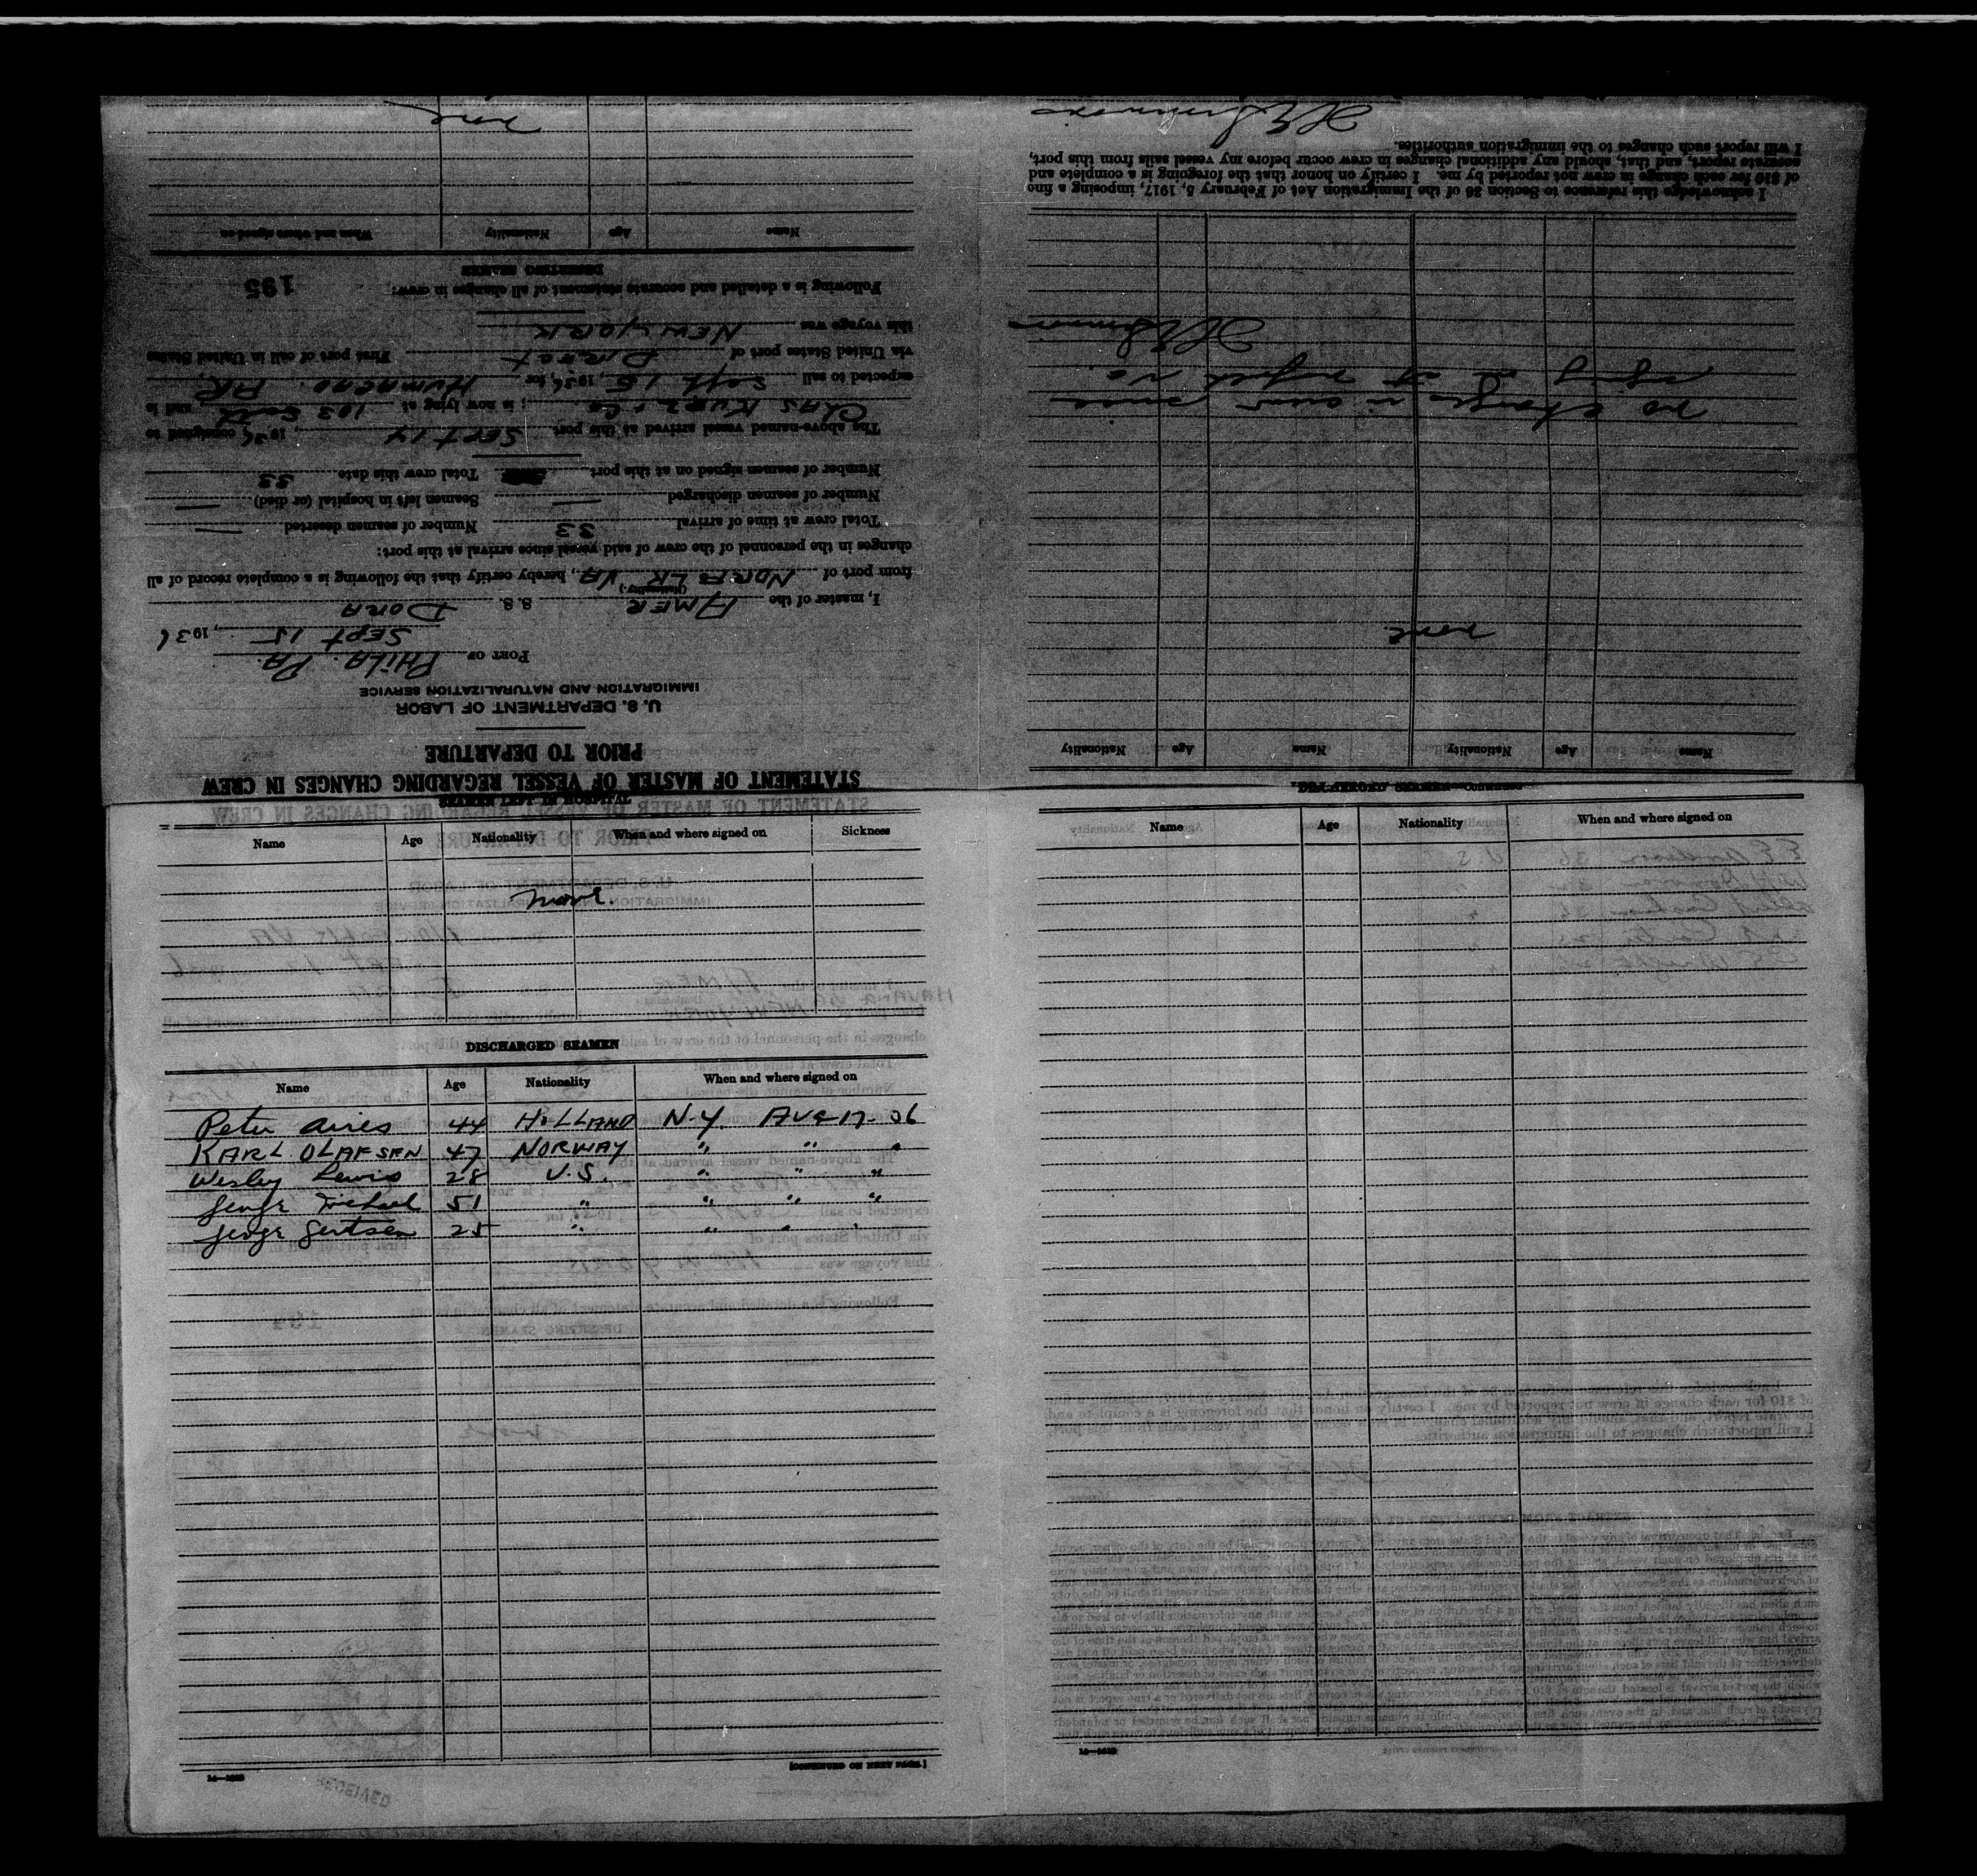 STATEMENT OF MASTER OF VESSEL REGARDING CHANGES IN CREW
PRIOR TO DEPARTURE
U. S. DEPARTMENT OF LABOR
IMMIGRATION AND NATURALIZATION SERVICE
PORT OF PHILA. PA.
SEPT 15, 1936
I, master of the AMER S. S. DORA
(Nationality.)
from port of NORFLK VA, hereby certify that the following is a complete record of all
changes in the personnel of the crew of said vessel since arrival at this port:
Total crew at time of arrival 33 Number of seamen deserted —
Number of seamen discharged — Seamen left in hospital (or died) —
Number of seamen signed on at this port Total crew this date 33
The above-named vessel arrived at this port SEPT 14, 1936, consigned to
CHAS KURZ & Co.; is now lying at 103 South and is
expected to sail Sept 15, 1936, for HUMACAO PR,
via United States port of DIRECT First port of call in United States
this voyage was NEW YORK
Following is a detailed and accurate statement of all changes in crew:
195
DESERTING SEAMEN
Name Age Nationality When and where signed on
none
Name Age Nationality Name Age Nationality
none
no changes in crew since
signing at Norfolk Va.
I acknowledge this reference to Section 36 of the Immigration Act of February 5, 1917, imposing a fine
of $10 for each change in crew not reported by me. I certify on honor that the foregoing is a complete and
accurate report, and that, should any additional changes in crew occur before my vessel sails from this port,
I will report such changes to the immigration authorities.
Name Age Nationality When and where signed on Sickness
none.
DISCHARGED SEAMEN
Name Age Nationality When and where signed on
Peter Aries 44 HOLLAND N.Y. AUG 17 36
KARL OLAFSEN 47 NORWAY " " "
Wesley Lewis 28 U.S. " " "
George Michael 51 " " " "
George Gertsen 25 " " " "
[CONTINUED ON NEXT PAGE.]
DISCHARGED SEAMEN—Continued
Name Age Nationality When and where signed on
RECEIVED